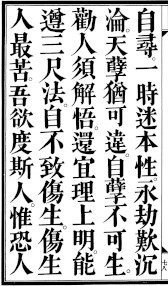 自尋。一時迷本性。永劫歎沉
淪。天孽猶可違。自孽不可生。
勸人須解悟。還宜理上明。能
遵三尺法。自不致傷生。傷生
人最苦。吾欲度斯人。惟恐人